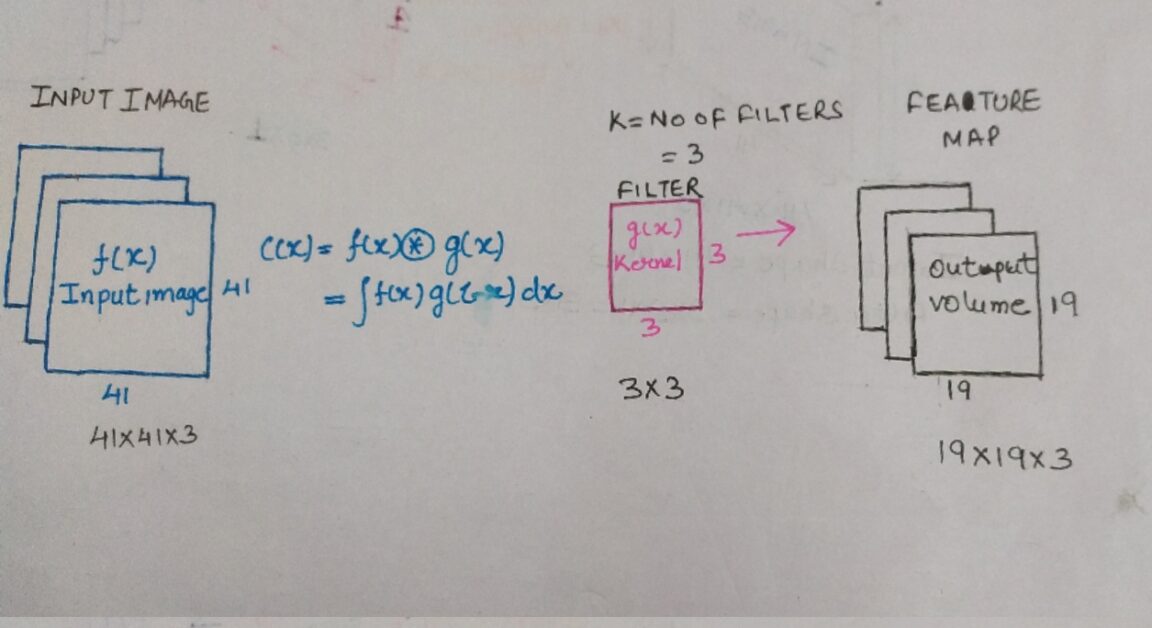 INPUT IMAGE
f(x)
Input image
41
41
41x41x3
C(x) = f(x) ⊛ g(x)
= ∫ f(x) g(τ-x) dx
K = NO OF FILTERS
= 3
FILTER
g(x)
Kernel
3
3
3x3
FEATURE
MAP
Output
volume
19
19
19x19x3